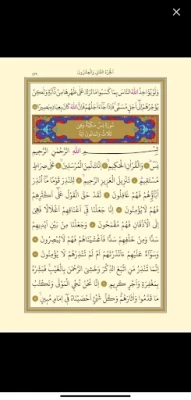 الجزء الثاني والعشرون
ولو يؤاخذ الله الناس بما كسبوا ما ترك على ظهرها من دابة ولكن
يؤخرهم إلى أجل مسمى فإذا جاء أجلهم فإن الله كان بعباده بصيرا
سورة يس مكية وهي
ثلاث وثمانون آية
بسم الله الرحمن الرحيم
يس والقرآن الحكيم إنك لمن المرسلين على صراط
مستقيم تنزيل العزيز الرحيم لتنذر قوما ما أنذر
آباؤهم فهم غافلون لقد حق القول على أكثرهم
فهم لا يؤمنون إنا جعلنا في أعناقهم أغلالا فهي
إلى الأذقان فهم مقمحون وجعلنا من بين أيديهم
سدا ومن خلفهم سدا فأغشيناهم فهم لا يبصرون
وسواء عليهم أأنذرتهم أم لم تنذرهم لا يؤمنون
إنما تنذر من اتبع الذكر وخشي الرحمن بالغيب فبشره
بمغفرة وأجر كريم إنا نحن نحي الموتى ونكتب
ما قدموا وآثارهم وكل شيء أحصيناه في إمام مبين